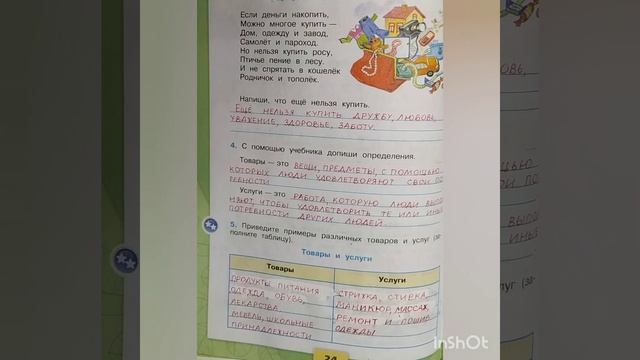 Если деньги накопить,
Можно многое купить —
Дом, одежду и завод,
Самолёт и пароход.
Но нельзя купить росу,
Птичье пение в лесу.
И не спрятать в кошелёк
Родничок и тополёк.
Напиши, что ещё нельзя купить.
ЕЩЕ НЕЛЬЗЯ КУПИТЬ ДРУЖБУ, ЛЮБОВЬ,
УВАЖЕНИЕ, ЗДОРОВЬЕ, ЗАБОТУ.
4. С помощью учебника допиши определения.
Товары — это ВЕЩИ, ПРЕДМЕТЫ, С ПОМОЩЬЮ
КОТОРЫХ ЛЮДИ УДОВЛЕТВОРЯЮТ СВОИ ПО
ТРЕБНОСТИ
Услуги — это РАБОТА, КОТОРУЮ ЛЮДИ ВЫПОЛ
НЯЮТ, ЧТОБЫ УДОВЛЕТВОРИТЬ ТЕ ИЛИ ИНЫЕ
ПОТРЕБНОСТИ ДРУГИХ ЛЮДЕЙ.
5. Приведите примеры различных товаров и услуг (за-
полните таблицу).
Товары и услуги
Товары Услуги
ПРОДУКТЫ ПИТАНИЯ СТРИЖКА, СТИРКА,
ОДЕЖДА, ОБУВЬ, МАНИКЮР, МАССАЖ,
ЛЕКАРСТВА РЕМОНТ И ПОШИВ
МЕБЕЛЬ, ШКОЛЬНЫЕ ОДЕЖДЫ
ПРИНАДЛЕЖНОСТИ
24
InShOt